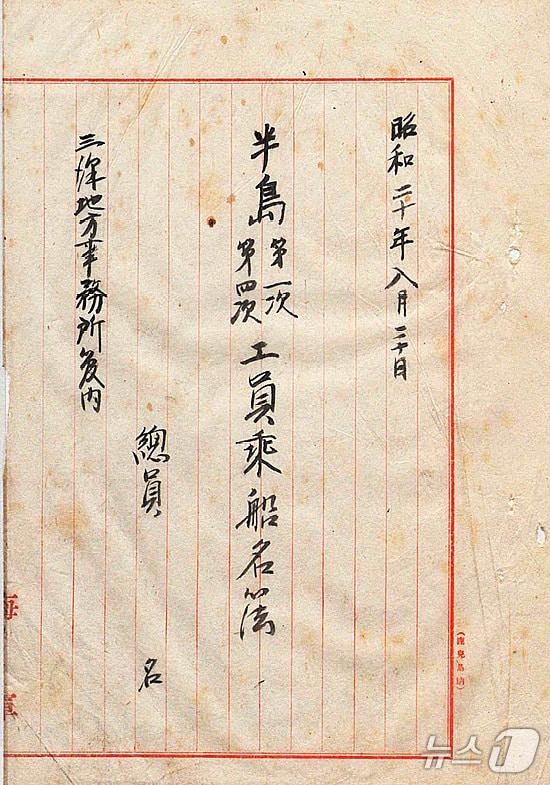 昭和二十年八月二十日
半島第一次第四次工員乗船名簿
總員 名
三澤地方事務所管内
海軍
뉴스1